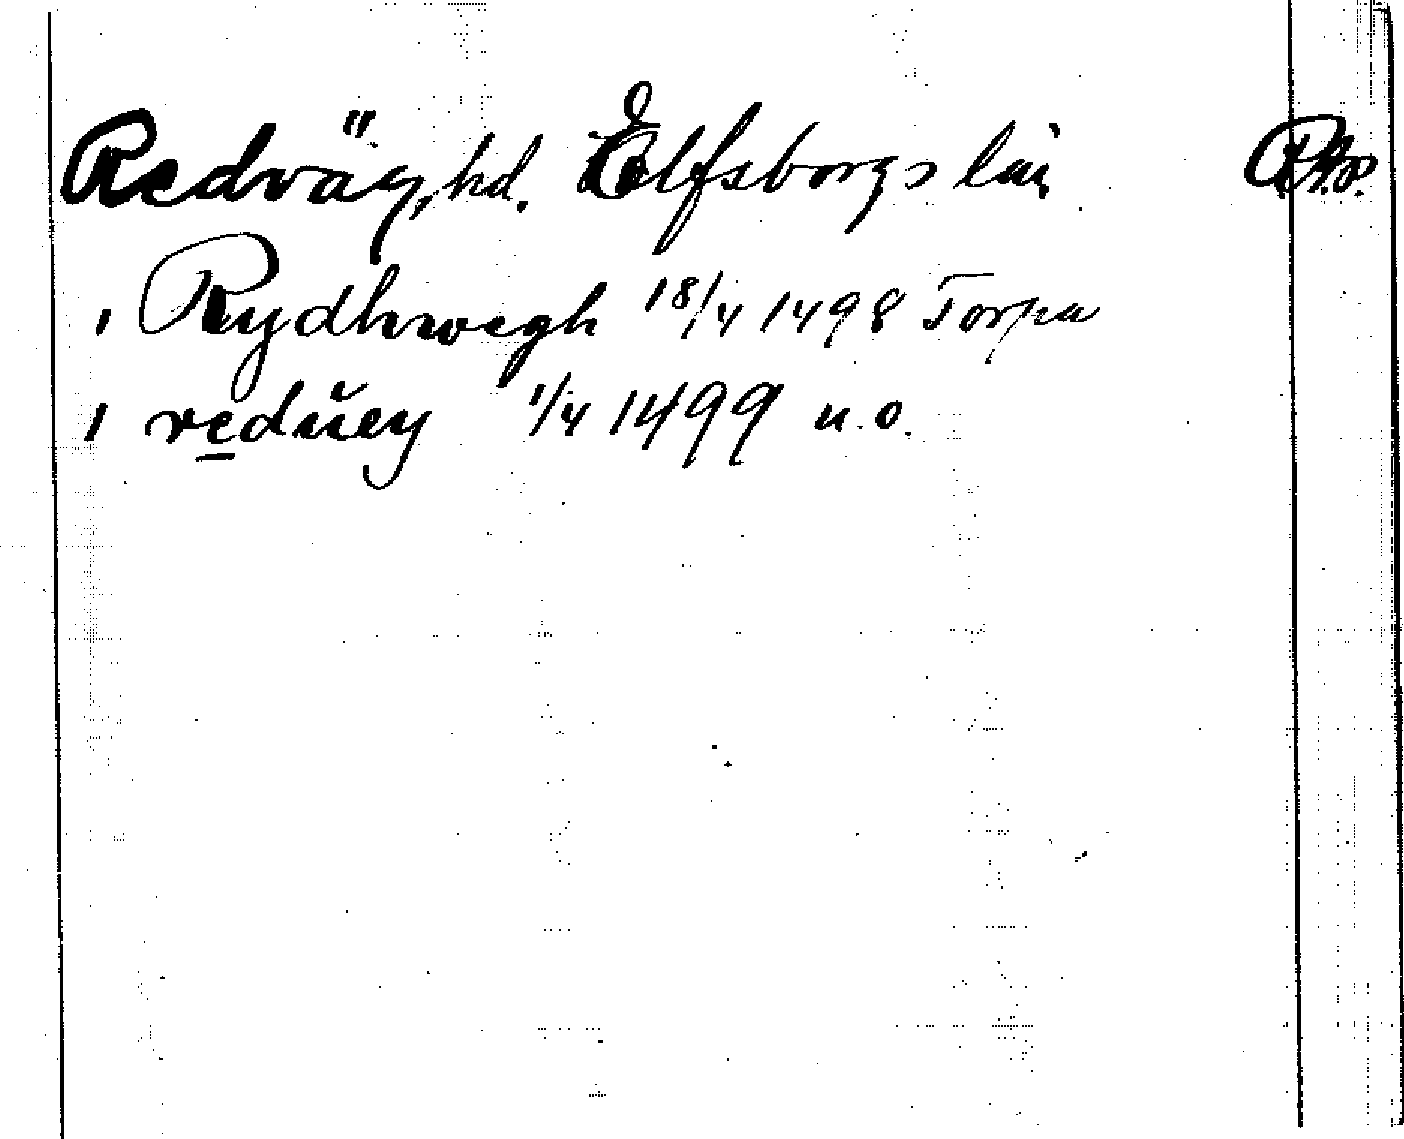 Redväg, hd. Elfsborgs län
1 Rydhwegh 18/4 1498 Torpa
1 reduey 1/4 1499 u.o.